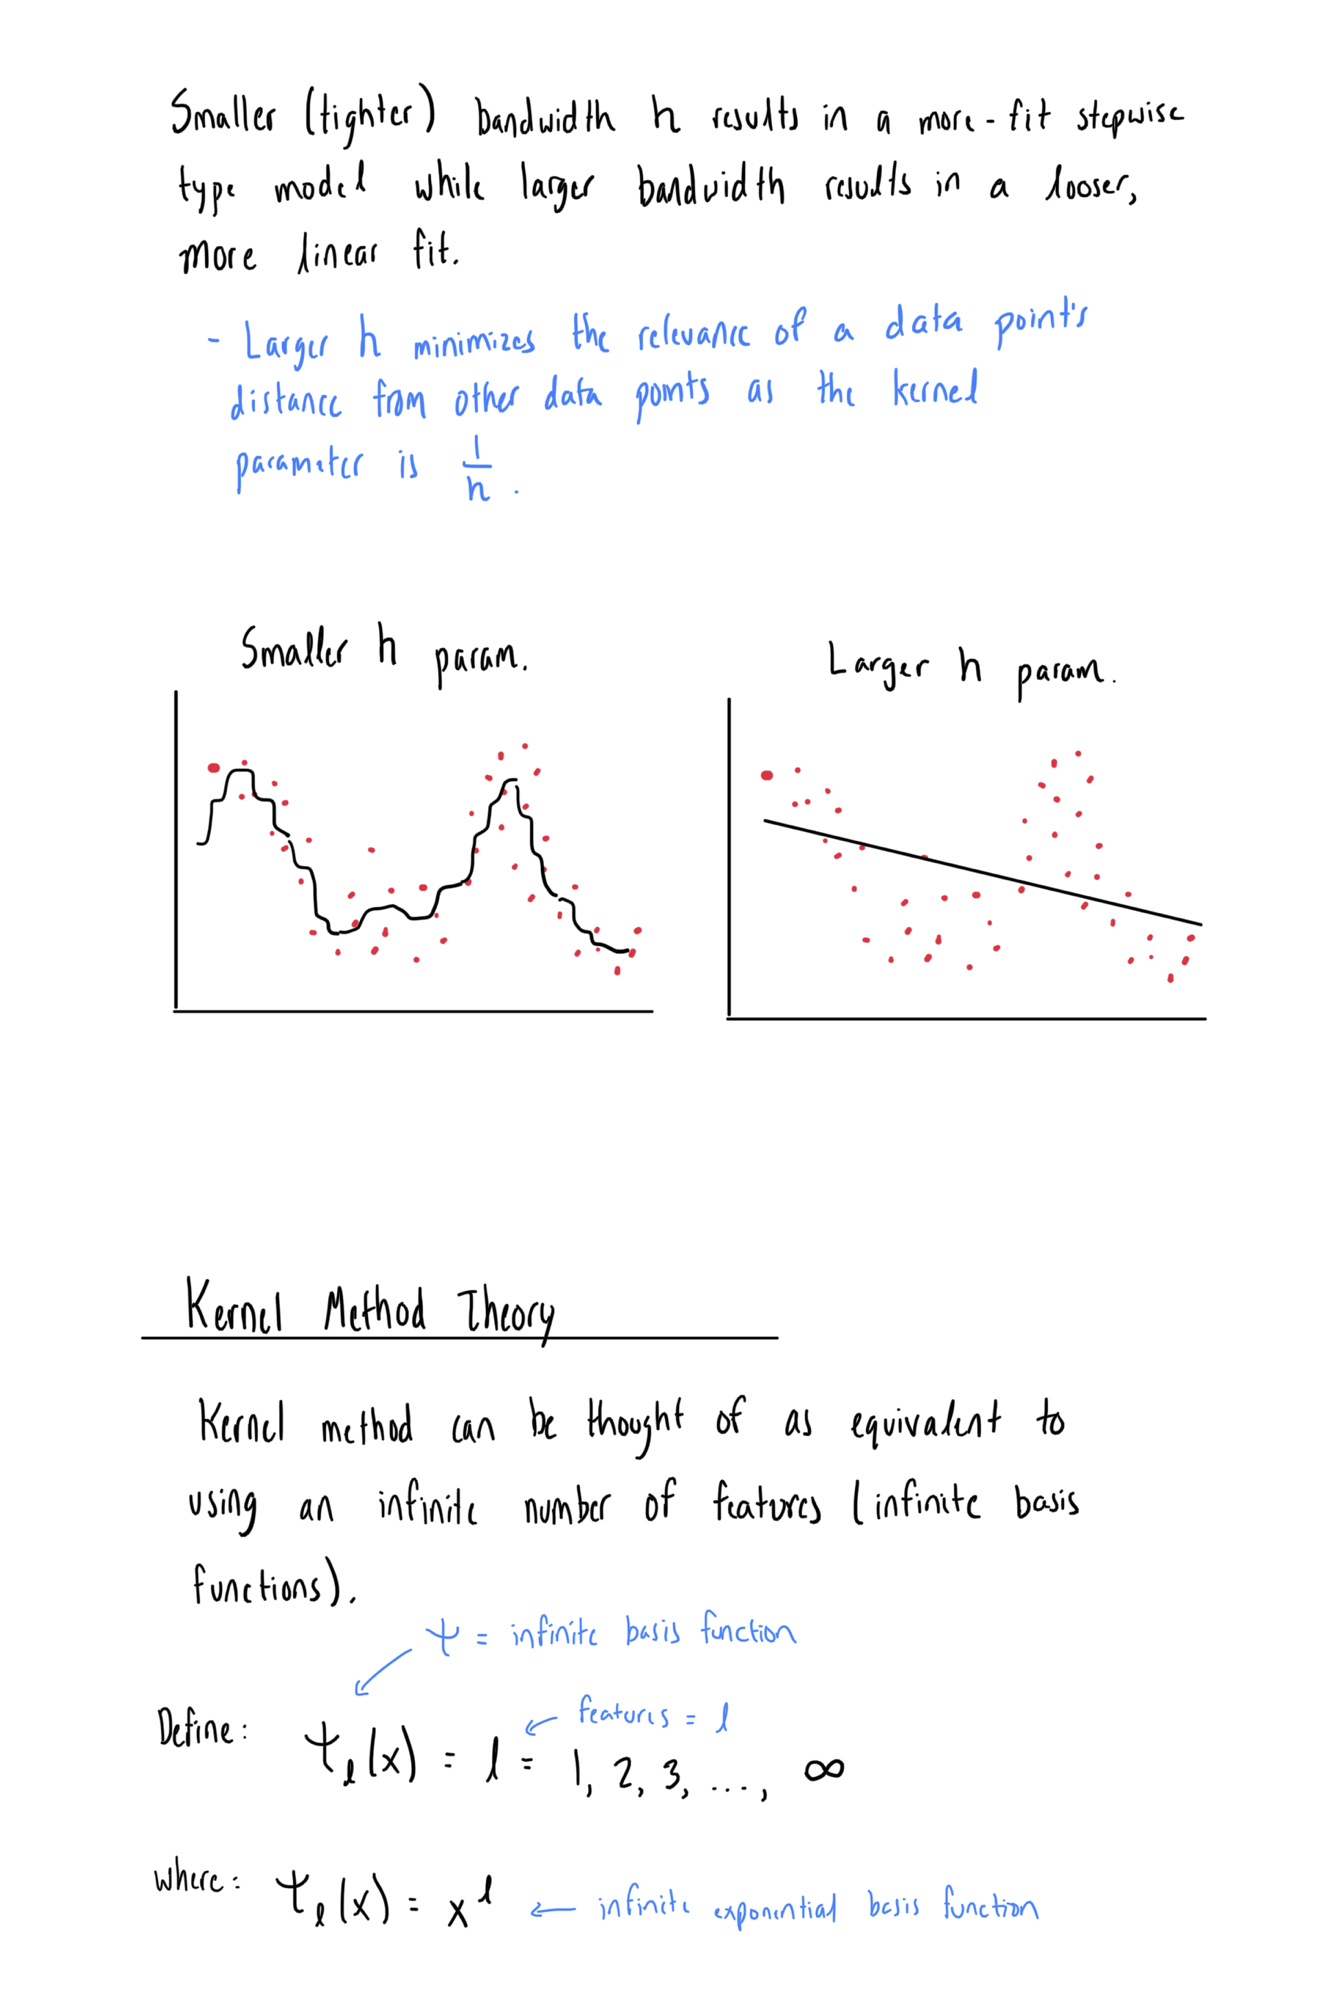 Smaller (tighter) bandwidth h results in a more-fit stepwise
type model while larger bandwidth results in a looser,
more linear fit.
- Larger h minimizes the relevance of a data point's
distance from other data points as the kernel
parameter is 1/h.
Smaller h param.
Larger h param.
Kernel Method Theory
Kernel method can be thought of as equivalent to
using an infinite number of features (infinite basis
functions).
Ψ = infinite basis function
features = l
Define: Ψ_l(x) = l = 1, 2, 3, ..., ∞
where: Ψ_l(x) = x^l ← infinite exponential basis function